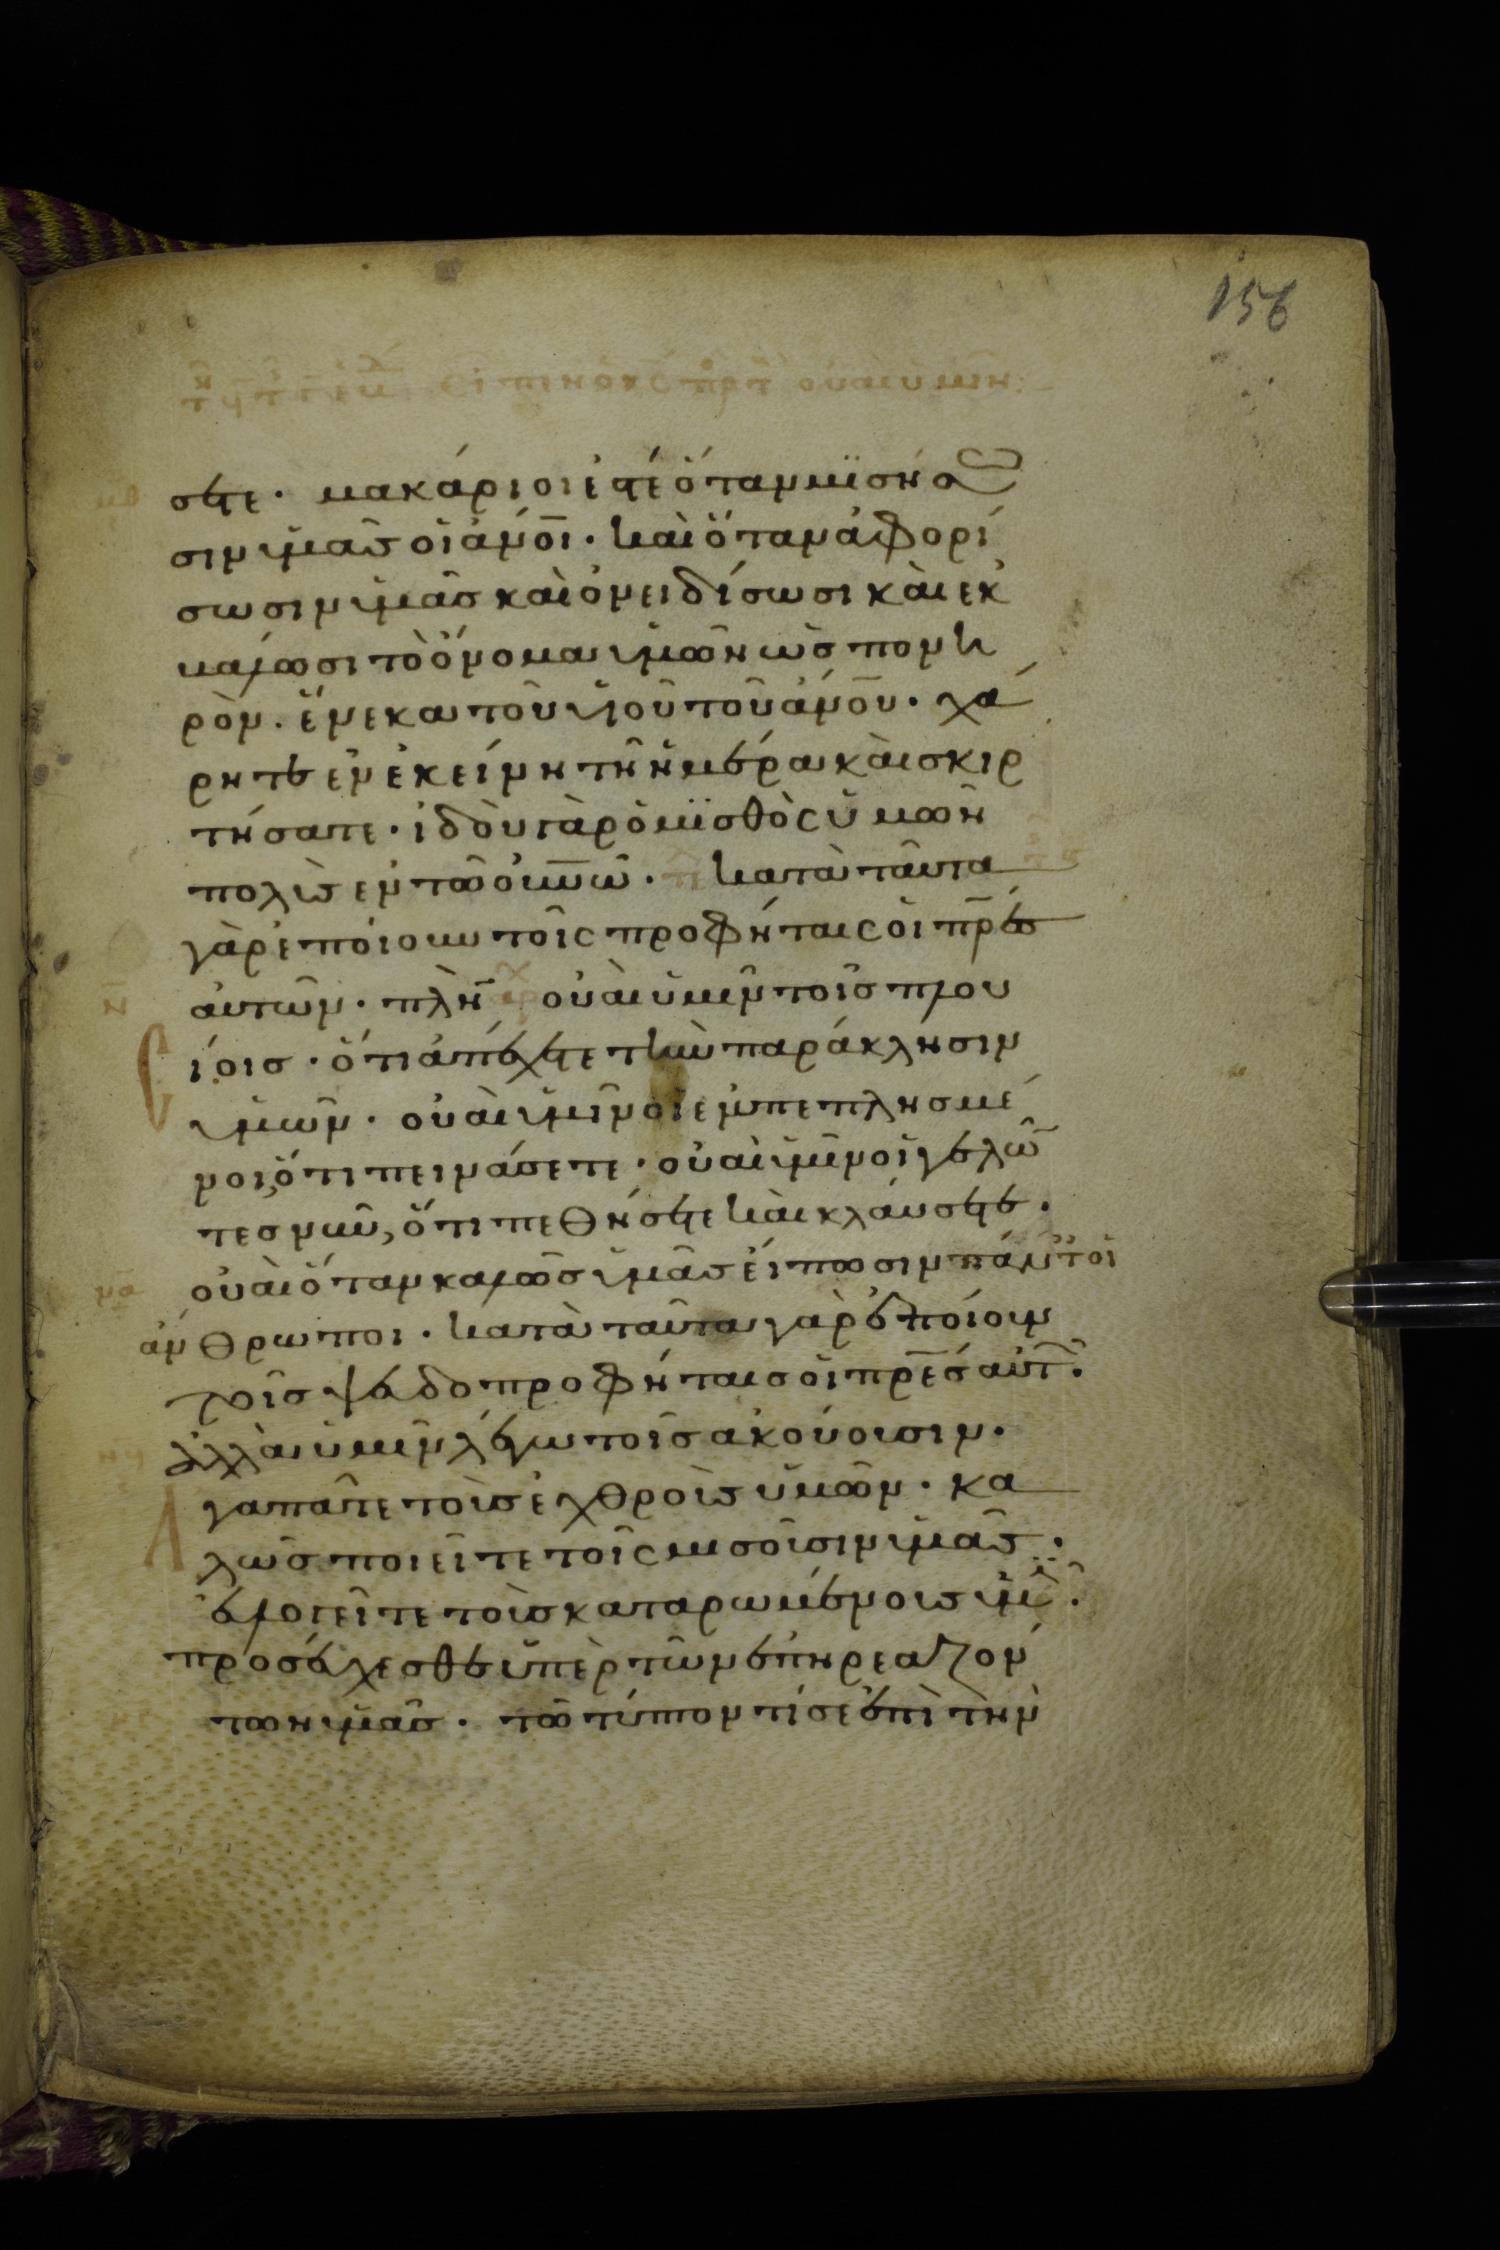 156
σετε· μακάριοί ἐστέ ὅταν μϊσήσω
σιν ὑμᾶς οἱ ἀνοι· καὶ ὅταν ἀφορί
σωσιν ὑμᾶς καὶ ὀνειδίσωσι καὶ ἐκ
βάλωσι τὸ ὄνομα ὑμῶν ὡς πονη
ρὸν· ἕνεκα τοῦ υἱοῦ τοῦ ἀνου· χά
ρητε ἐν ἐκείνη τῆ ἡμέρα καὶ σκιρ
τήσατε· ἰδοὺ γὰρ ὁ μϊσθὸς ὑμῶν
πολὺς ἐν τῶ οὐνω· κατὰ ταῦτα
γὰρ ἐποίουν τοῖς προφήταις οἱ πρες
αὐτῶν· πλὴν οὐαὶ ὑμῖν τοῖς πλου
ίοις· ὅτι ἀπέχετε τὴν παράκλησιν
ὑμῶν· οὐαὶ ὑμῖν οἱ ἐμπεπλησμέ
νοι, ὅτι πεινάσετε· οὐαὶ ὑμῖν οἱ γελῶ
τες νῦν, ὅτι πεθήσετε καὶ κλαύσετε·
οὐαὶ ὅταν καλῶς ὑμᾶς εἴπωσιν πάντες οἱ
ἄνθρωποι· κατὰ ταῦτα γὰρ ἐποίουν
τοῖς ψεδοπροφήταις οἱ πρες αὐτ·
ἀλλὰ ὑμῖν λέγω τοῖς ἀκούουσιν·
Αγαπᾶτε τοὺς ἐχθροὺς ὑμῶν· κα
λῶς ποιεῖτε τοῖς μισοῦσιν ὑμᾶς·
ἐλογεῖτε τοὺς καταρωμένους ὑμ·
προσέχεσθε ὑπὲρ τῶν ἐπηρεαζόν
των ὑμᾶς· τῶ τύπτοντί σε ἐπὶ τὴν